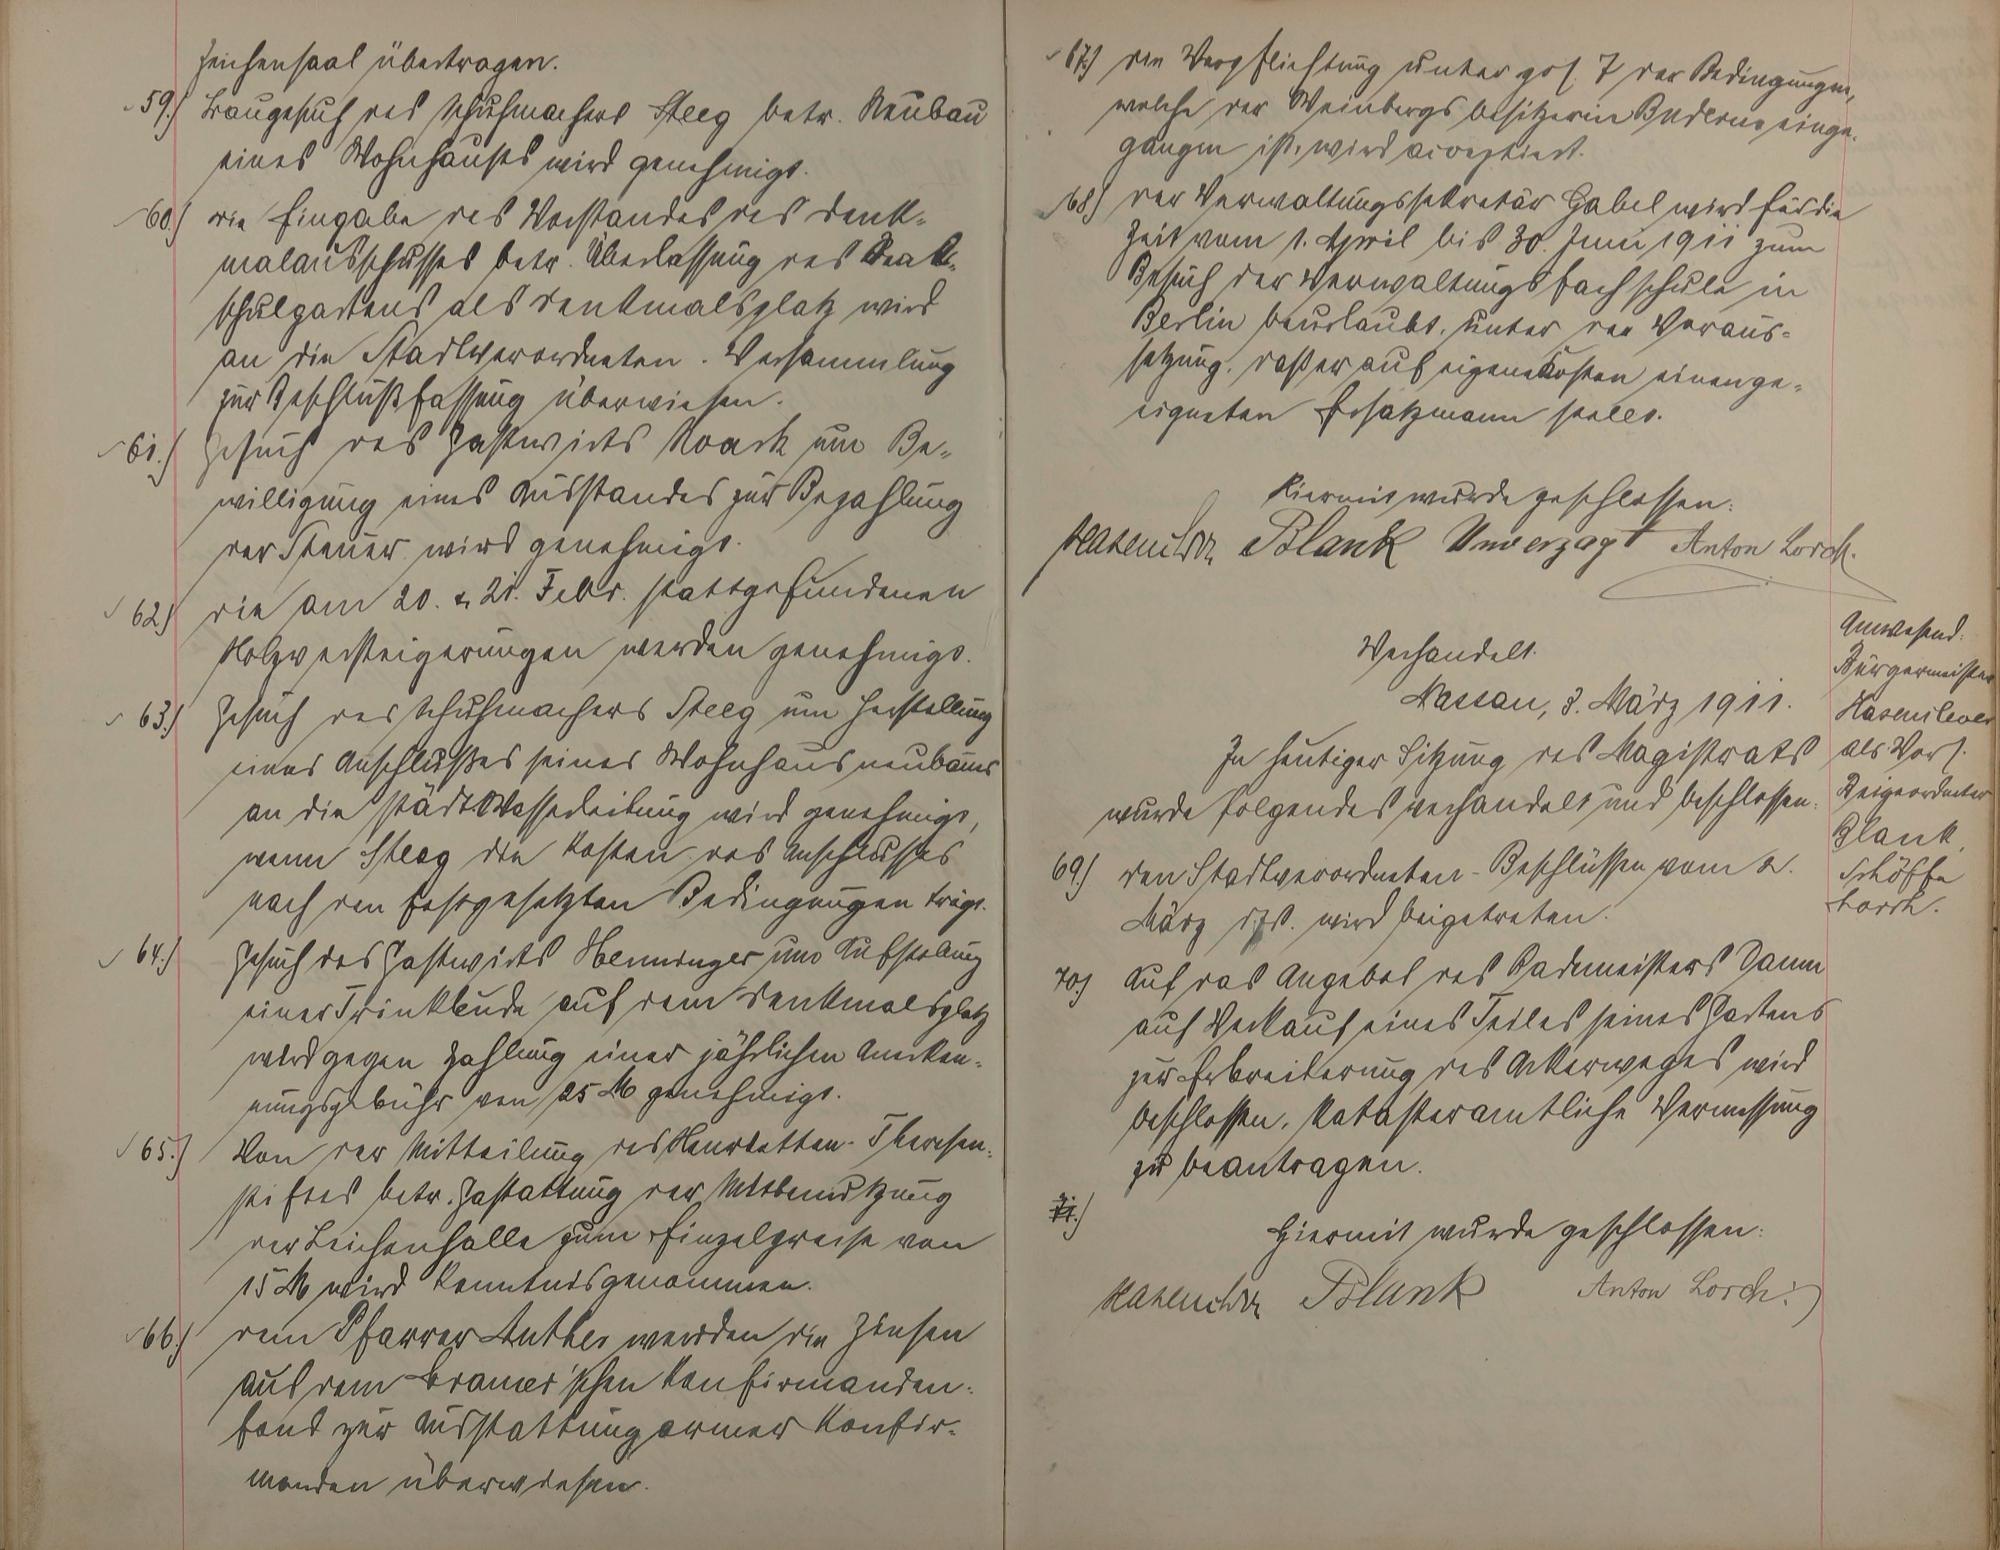 Zeichensaal übertragen.
59.) Baugesuch des Schuhmachers Steeg betr. Neubau
eines Wohnhauses wird genehmigt.
60.) die Eingabe des Vorstandes des Denk-
malausschusses betr. Überlassung des Real-
schulgartens als Denkmalsplatz wird
an die Stadtverordneten-Versammlung
zur Beschlußfassung überwiesen.
61.) Gesuch des Gastwirts Noack um Be-
willigung eines Ausstandes zur Bezahlung
der Steuer wird genehmigt.
62.) die am 20. & 21. Febr. stattgefundenen
Holzversteigerungen werden genehmigt.
63.) Gesuch des Schuhmachers Steeg um Herstellung
eines Anschlußes seines Wohnhausneubaues
an die städt. Wasserleitung wird genehmigt,
wenn Steeg die Kosten des Anschlusses
nach den festgesetzten Bedingungen trägt.
64.) Gesuch des Gastwirts Henninger um Aufstellung
einer Trinkbude auf dem Denkmalsplatz
wird gegen Zahlung einer jährlichen Anerken-
nungsgebühr von 25 M genehmigt.
65.) Von der Mitteilung des Henrietten-Theresen-
stiftes betr. Gestattung der Mitbenutzung
der Leichenhalle zum Einzelpreise von
15 M wird Kenntnis genommen.
66.) dem Pfarrer Anthes werden die Zinsen
aus dem Cramer'schen Konfirmanden-
fond zur Ausstattung armer Konfir-
manden überwiesen.
67.) die Verpflichtung unter pos. 7 der Bedingungen,
welche der Weinbergsbesitzerin Buderus einge-
gangen ist, wird acceptiert.
68.) der Verwaltungssekretär Gabel wird für die
Zeit vom 1. April bis 30. Juni 1911 zum
Besuch der Verwaltungsfachschule in
Berlin beurlaubt, unter der Voraus-
setzung, daß er auf eigene Kosten einen ge-
eigneten Ersatzmann stellt.
Hiermit wurde geschlossen:
Hasenclever Blank Unverzagt Anton Lorch.
Verhandelt.
Nassau, 3. März 1911.
Anwesend:
Bürgermeister
Hasenclever
als Vors.
Beigeordneter
Blank,
Schöffe
Lorch.
In heutiger Sitzung des Magistrats
wurde folgendes verhandelt und beschlossen:
69.) den Stadtverordneten-Beschlüssen vom 2.
März djs. wird beigetreten.
70.) Auf das Angebot des Bademeisters Damm
auf Verkauf eines Teiles seines Gartens
zur Erbreiterung des Ackerweges wird
beschlossen, katasteramtliche Vermessung
zu beantragen.
71.)
Hiermit wurde geschlossen:
Hasenclever Blank Anton Lorch.